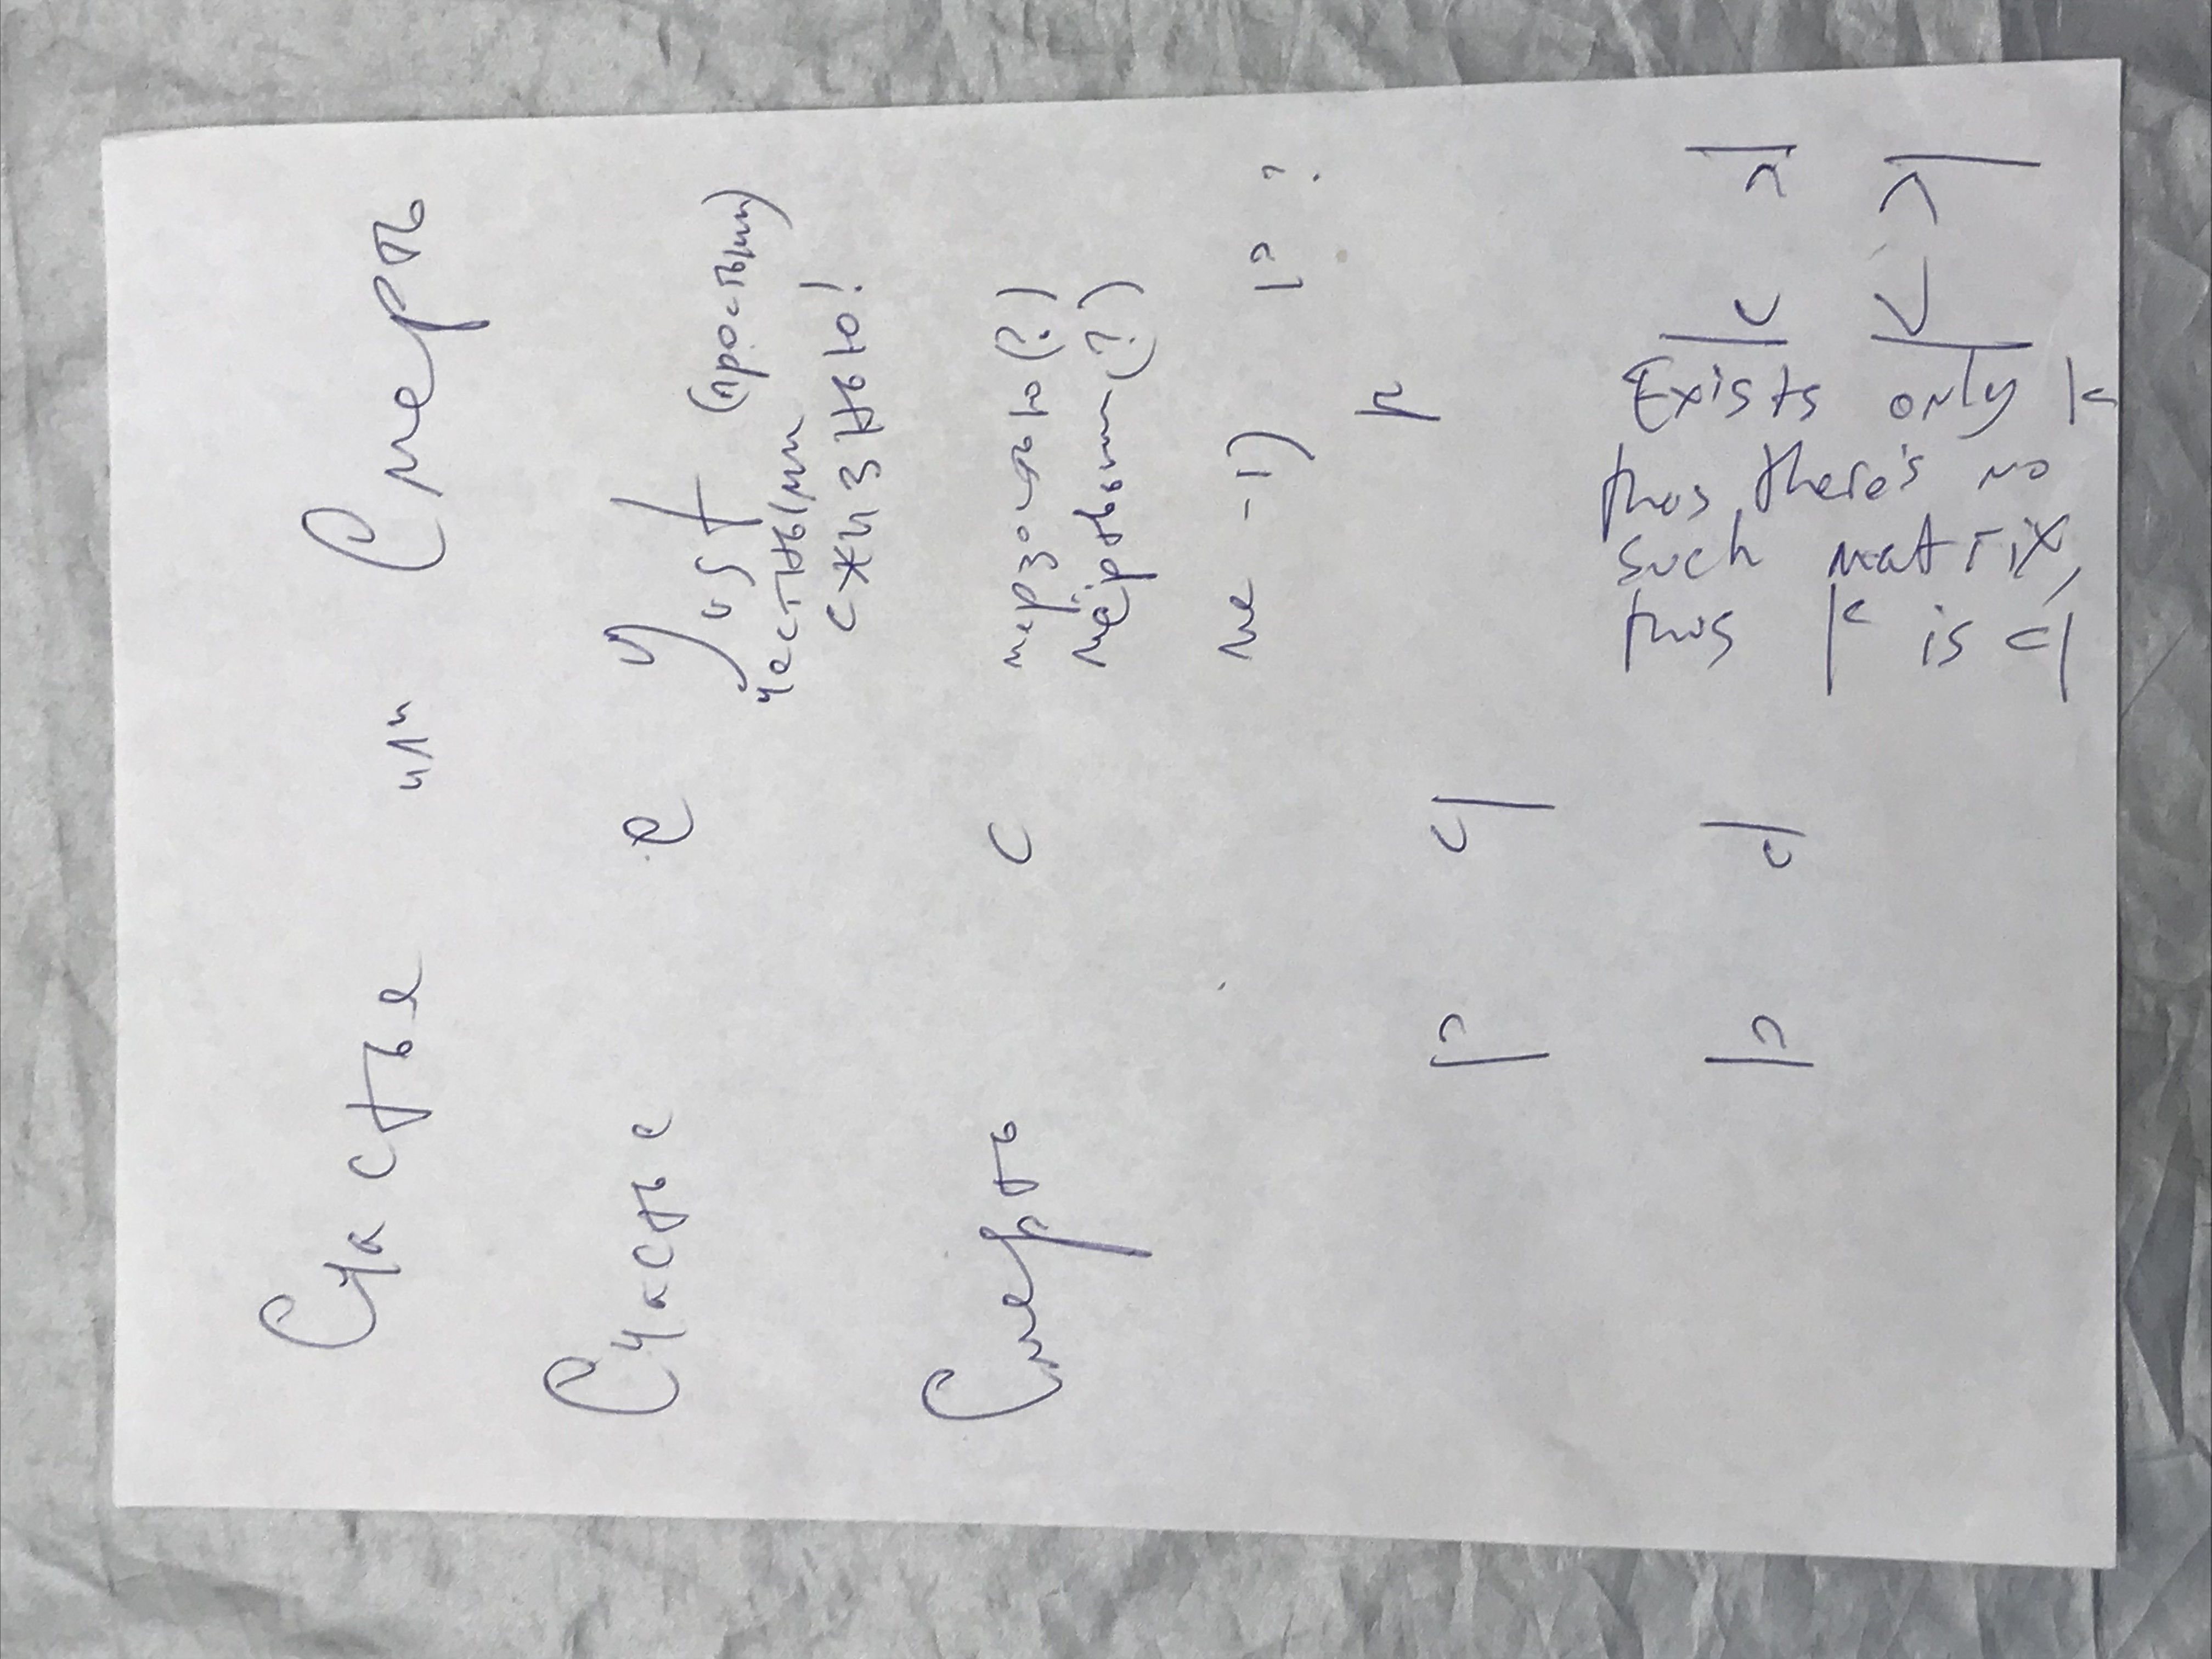 Счастье или Смерть
Счастье с Just (простыми)
честными
с жизнью!
Смерть с мерзостью(?)
мёртвыми(?)
не -1) ?
Exists only
thas there's no
such matrix,
thus is